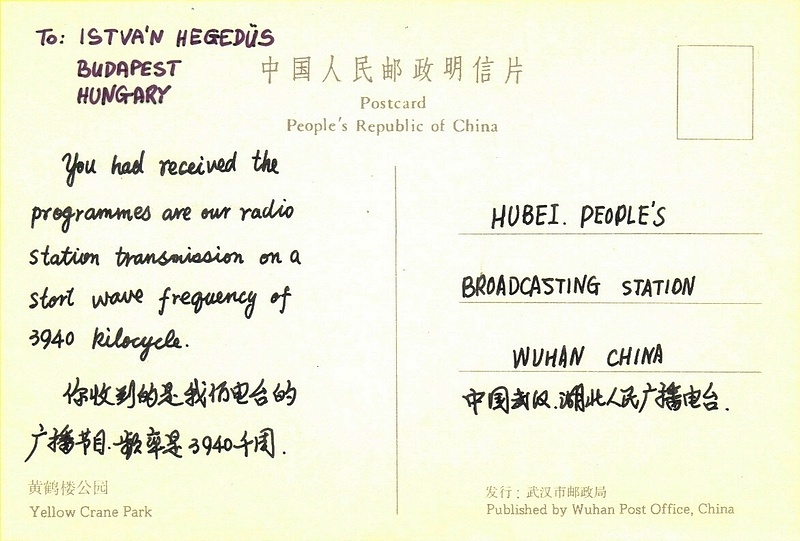 To: ISTVA'N HEGEDÜS
BUDAPEST
HUNGARY
中国人民邮政明信片
Postcard
People's Republic of China
You had received the
programmes are our radio
station transmission on a
stort wave frequency of
3940 kilocycle.
你收到的是我们电台的
广播节目.频率是3940千周.
黄鹤楼公园
Yellow Crane Park
HUBEI. PEOPLE'S
BROADCASTING STATION
WUHAN CHINA
中国武汉.湖北人民广播电台.
发行：武汉市邮政局
Published by Wuhan Post Office, China